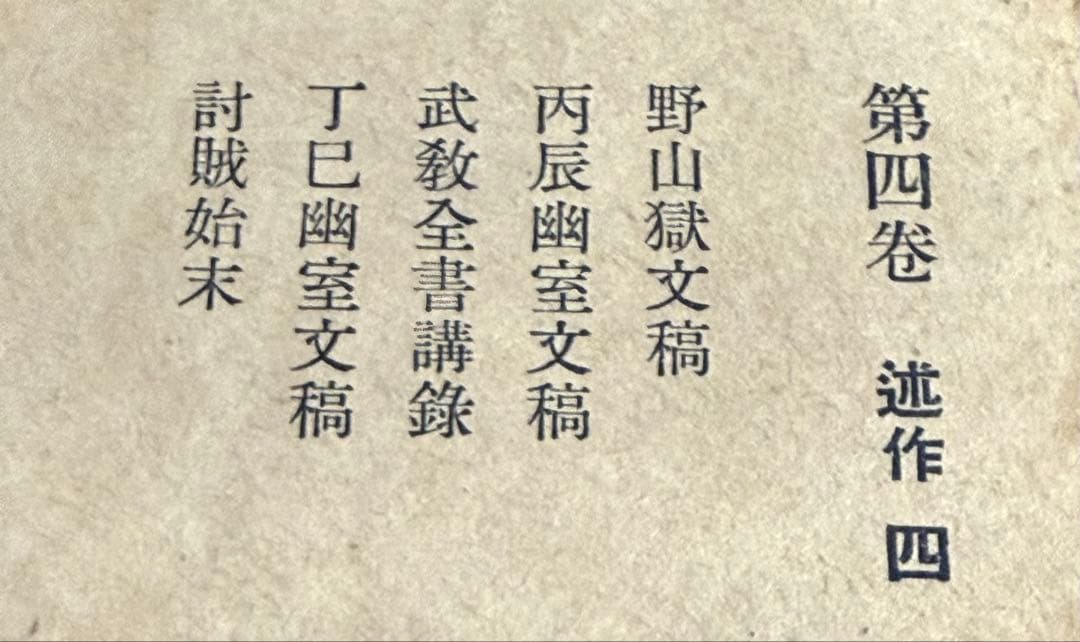 第四卷 述作 四
野山獄文稿
丙辰幽室文稿
武敎全書講錄
丁巳幽室文稿
討賊始末